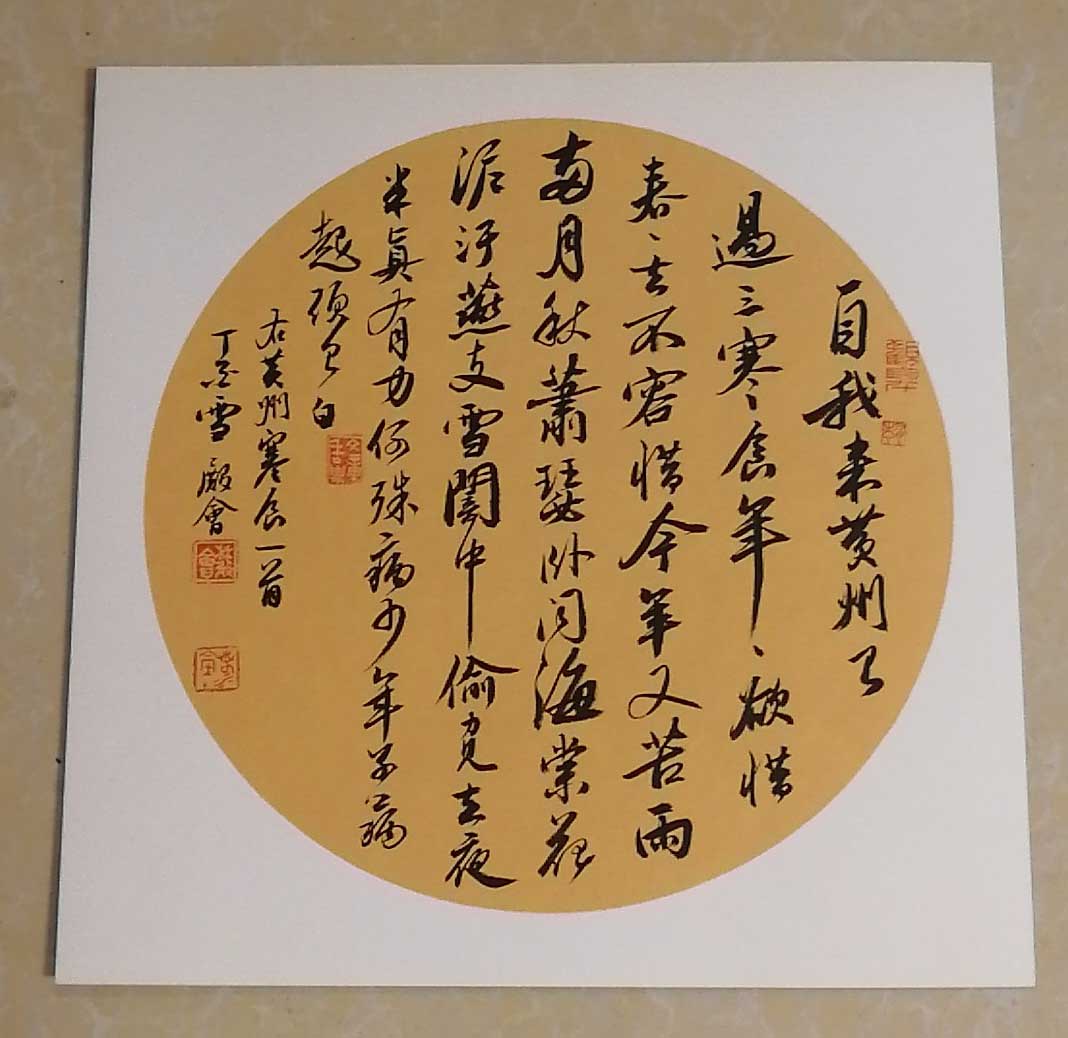 自我来黄州已
過三寒食年〻欲惜
春〻去不容惜今年又苦雨
兩月秋蕭瑟卧闻海棠花
泥汙燕支雪闇中偷負去夜
半真有力何殊病少年子病
起須已白
右黄州寒食一首
雪
會